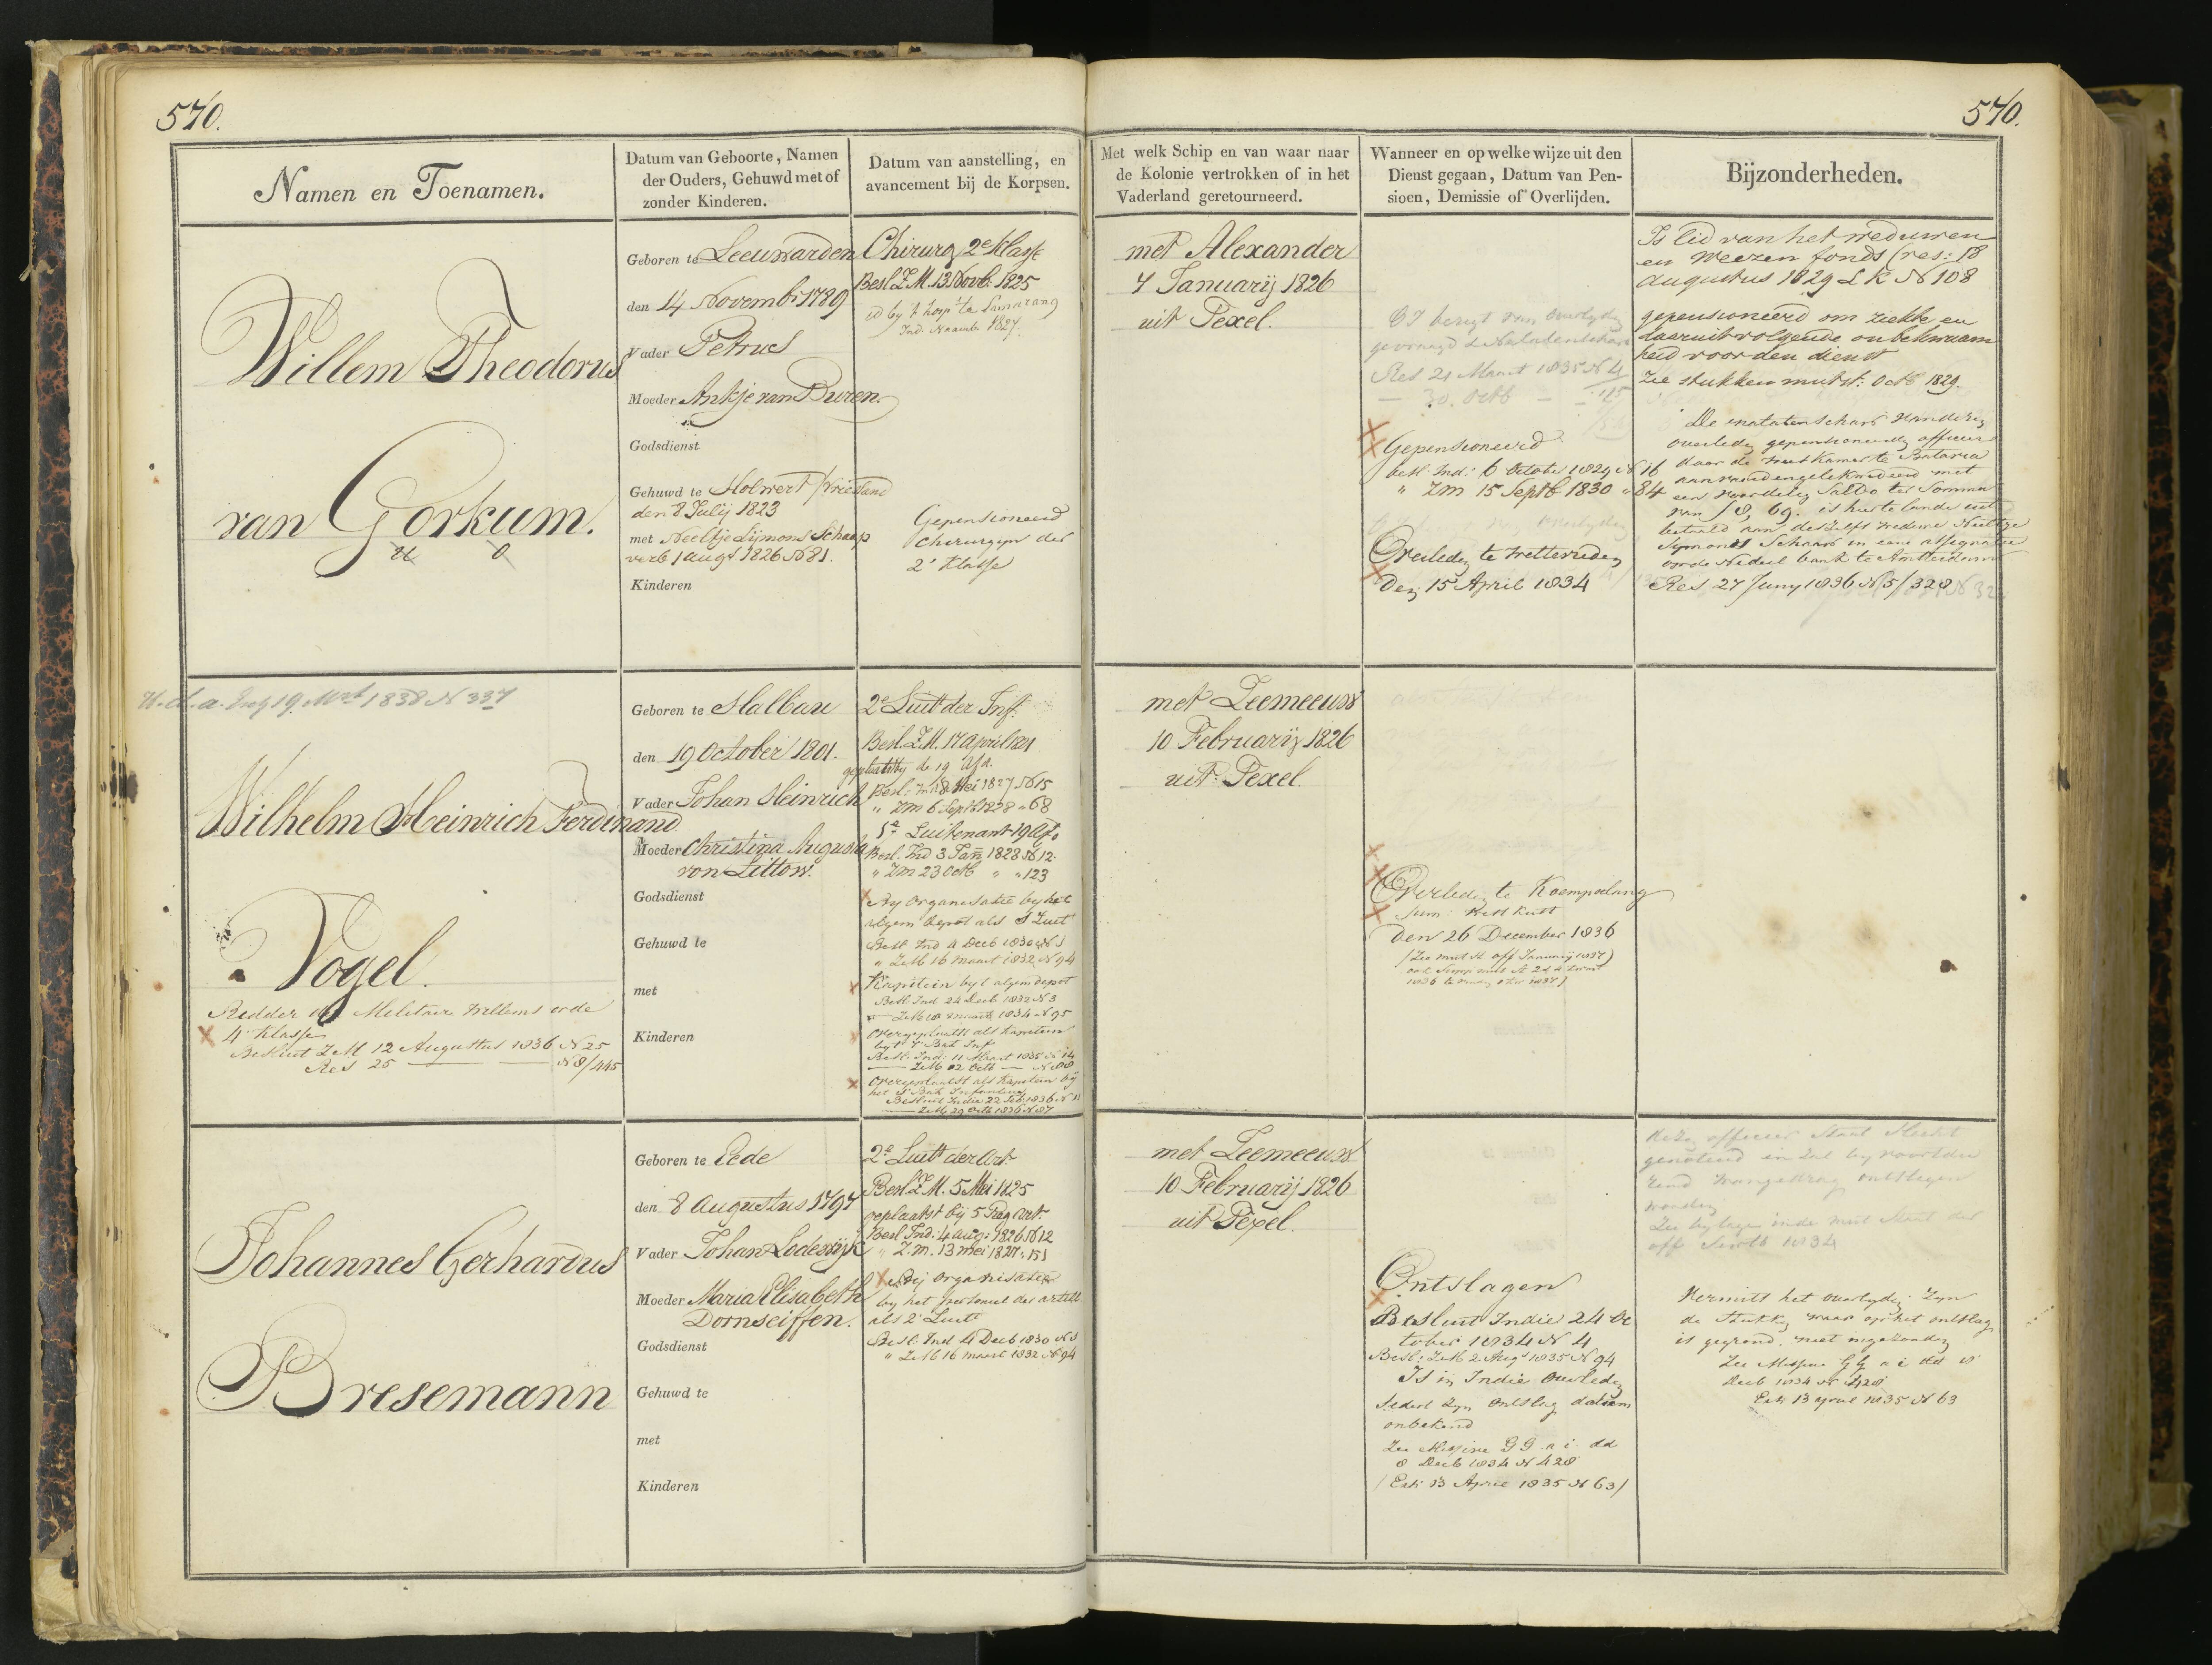 570.
570.
Namen en Toenamen.
Datum van Geboorte, Namen
der Ouders, Gehuwd met of
zonder Kinderen.
Datum van aanstelling, en
avancement bij de Korpsen.
Met welk Schip en van waar naar
de Kolonie vertrokken of in het
Vaderland geretourneerd.
Wanneer en op welke wijze uit den
Dienst gegaan, Datum van Pen-
sioen, Demissie of Overlijden.
Bijzonderheden.
Willem Theodorus
van Gorkum.
Geboren te Leeuwarden
den 14 Novemb: 1789
Vader Petrus
Moeder Ankje van Buren.
Godsdienst
Gehuwd te Holwert Vriesland
den 8 Julij 1823
met Neeltje Sijmons Schaap
verb 1 Augt 1826 N 81.
Kinderen
Chirurg 2e Klasse
Besl Z.M. 13 Novb: 1825
Gepensioneerd
Chirurgijn der
2e Klasse
met Alexander
7 Januarij 1826
uit Texel.
Res 21 Maart 1835 N 4
Gepensioneerd
besl. Ind: 6 October 1829 N 16
" ZM 15 Septb 1830 " 84
Overleden te Weltevreden
Den 15 April 1834
Is lid van het weduwen
en Weezen fonds (res: 18
Augustus 1829 L K N 108
gepensioneerd om ziekte en
daaruitvolgende onbekwaam
heid voor den dienst
Zie stukken mutst: Octb 1829.
De nalatenschap van dezen
overleden gepensioneerden officier
door de Weeskamer te Batavia
met
een voordelig Saldo ter Somma
van f 8,69. is hier te lande uit
betaald aan deszelfs weduwe Neeltje
Symons Schaap in eene assignatie
op de Nederl bank te Amsterdam
Res 27 Juny 1836 N 5/328
19 Mrt 1838 N 337
Wilhelm Heinrich Ferdinand
Vogel.
Ridder der Militaire Willems orde
4e Klasse
Besluit ZM 12 Augustus 1836 N 25
Res 25 — — N 8/445
Geboren te Halbau
den 19 October 1801.
Vader Johan Heinrich
Moeder Christina Augusta
von Littow.
Godsdienst
Gehuwd te
met
Kinderen
2e Luit der Inf.
Besl. Z.M. 17 April 1821
geplaatst by de 19 Afd.
Besl. Ind 8 Mei 1827 N 15
" ZM 6 Septb 1828 " 68
1e Luitenant 19 Afd
Besl. Ind 3 Jan 1828 N 12.
" ZM 23 Octb " " 123
By Organisatie by het
algem depot als 1 Luit
Besl Ind 4 Decb 1830 N 1
" ZM 16 maart 1832 N 94
Kapitein by't algem depot
Besl Ind 24 Decb 1832 N 3
ZM 18 maart 1834 N 95
Overgeplaatst als Kapitein
by't 7 Bat Inf
Besl. Ind: 11 Maart 1835 N 14
Overgeplaatst als Kapitein by
het 1 Bat Infanterie
Besluit Indie 22 Feb 1836 N 11
ZM 29 Octb 1836 N 87
met Zeemeeuw
10 Februarij 1826
uit Texel.
Overleden te
Sum: West Kust
Den 26 December 1836
(Zie mut st off January 1837)
Johannes Gerhardus
Bresemann
Geboren te Eede
den 8 Augustus 1797
Vader Johan Lodewijk
Moeder Maria Elisabeth
Dornseiffen.
Godsdienst
Gehuwd te
met
Kinderen
2e Luit der Art
Besl Z.M. 5 Mei 1825
geplaatst bij 5 Reg Art.
Besl Ind. 4 Aug: 1826 N 12
" Z.M. 13 Mei 1827 " 151
Bij Organisatie
by het personeel der artill
als 2e Luit
Besl. Ind 4 Decb 1830 N 1
" ZM 16 maart 1832 N 94
met Zeemeeuw
10 Februarij 1826
uit Texel.
Ontslagen
Besluit Indie 24 Oc
tober 1834 N 4
Besl: ZM 2 Aug 1835 N 94
Is in Indie Overleden
Sedert zyn ontslag datum
onbekend
Zie Missive GG a i dd
8 Decb 1834 N 428
(Exh 13 April 1835 N 63)
Dezen officier Staat Slecht
genoteerd en zal by voortdu
rend wangedrag ontslagen
worden
Zie bylage in de mut Staat der
off Septb 1834
Vermits het overlyden zyn
de Stukken waar op het ontslag
is gegrond niet ingezonden
Zie Missive GG a i dd 8
Decb 1834 N 428
Exh 13 april 1835 N 63